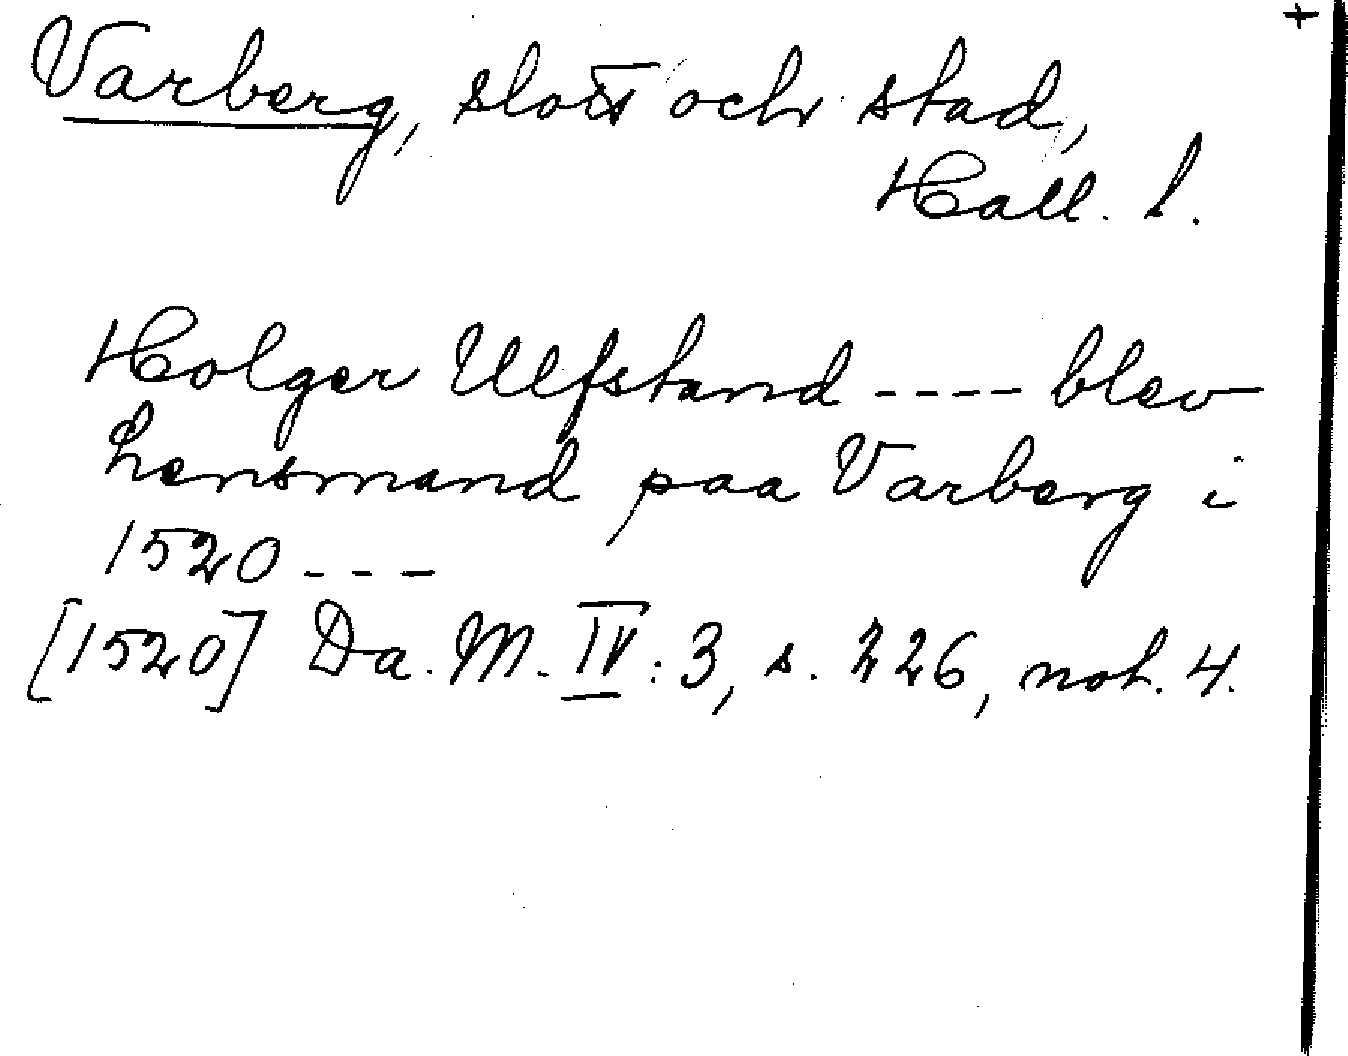 +
Varberg, slott och stad,
Hall. l.
Holger Ulfstand ---- blev
Lensmand paa Varberg i
1520 ---
[1520] Da. M. IV: 3, s. 226, not. 4.